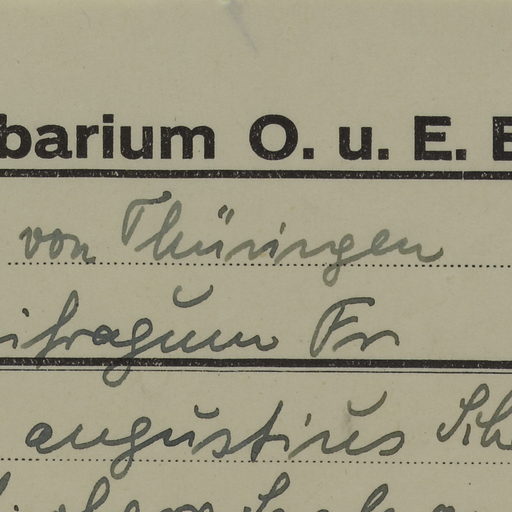 barium O. u. E. B
von Thüringen
ifragum Fr
angustius Sch